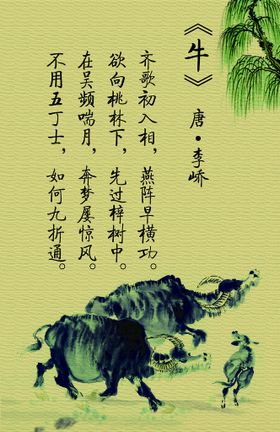 《牛》
唐·李峤
齐歌初入相，燕阵早横功。
欲向桃林下，先过梓树中。
在吴频喘月，奔梦屡惊风。
不用五丁士，如何九折通。